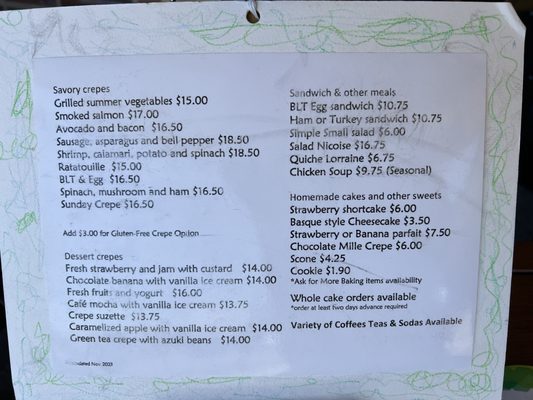 Savory crepes
Grilled summer vegetables $15.00
Smoked salmon $17.00
Avocado and bacon $16.50
Sausage, asparagus and bell pepper $18.50
Shrimp, calamari, potato and spinach $18.50
Ratatouille $15.00
BLT & Egg $16.50
Spinach, mushroom and ham $16.50
Sunday Crepe $16.50
Add $3.00 for Gluten-Free Crepe Option
Dessert crepes
Fresh strawberry and jam with custard $14.00
Chocolate banana with vanilla ice cream $14.00
Fresh fruits and yogurt $16.00
Café mocha with vanilla ice cream $13.75
Crepe suzette $13.75
Caramelized apple with vanilla ice cream $14.00
Green tea crepe with azuki beans $14.00
Nov. 2023
Sandwich & other meals
BLT Egg sandwich $10.75
Ham or Turkey sandwich $10.75
Simple Small salad $6.00
Salad Nicoise $16.75
Quiche Lorraine $6.75
Chicken Soup $9.75 (Seasonal)
Homemade cakes and other sweets
Strawberry shortcake $6.00
Basque style Cheesecake $3.50
Strawberry or Banana parfait $7.50
Chocolate Mille Crepe $6.00
Scone $4.25
Cookie $1.90
*Ask for More Baking items availability
Whole cake orders available
*order at least two days advance required
Variety of Coffees Teas & Sodas Available